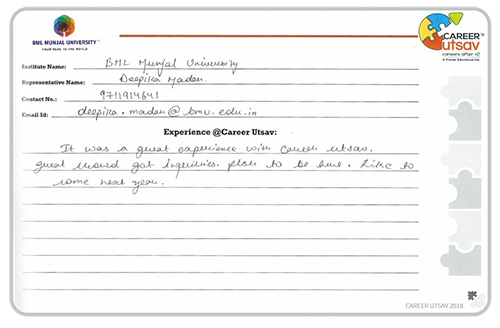 BML MUNJAL UNIVERSITY
FROM HERE TO THE WORLD
CAREER
utsav
careers after +2
A Premier Educational Fair
Institute Name: BML Munjal University
Representative Name: Deepika Madan
Contact No.: 9711914641
Email Id: deepika.madan@bmu.edu.in
Experience @Career Utsav:
It was a great experience with Career Utsav.
great crowd got inquiries. to be here. Like to
come next year.
CAREER UTSAV 2018